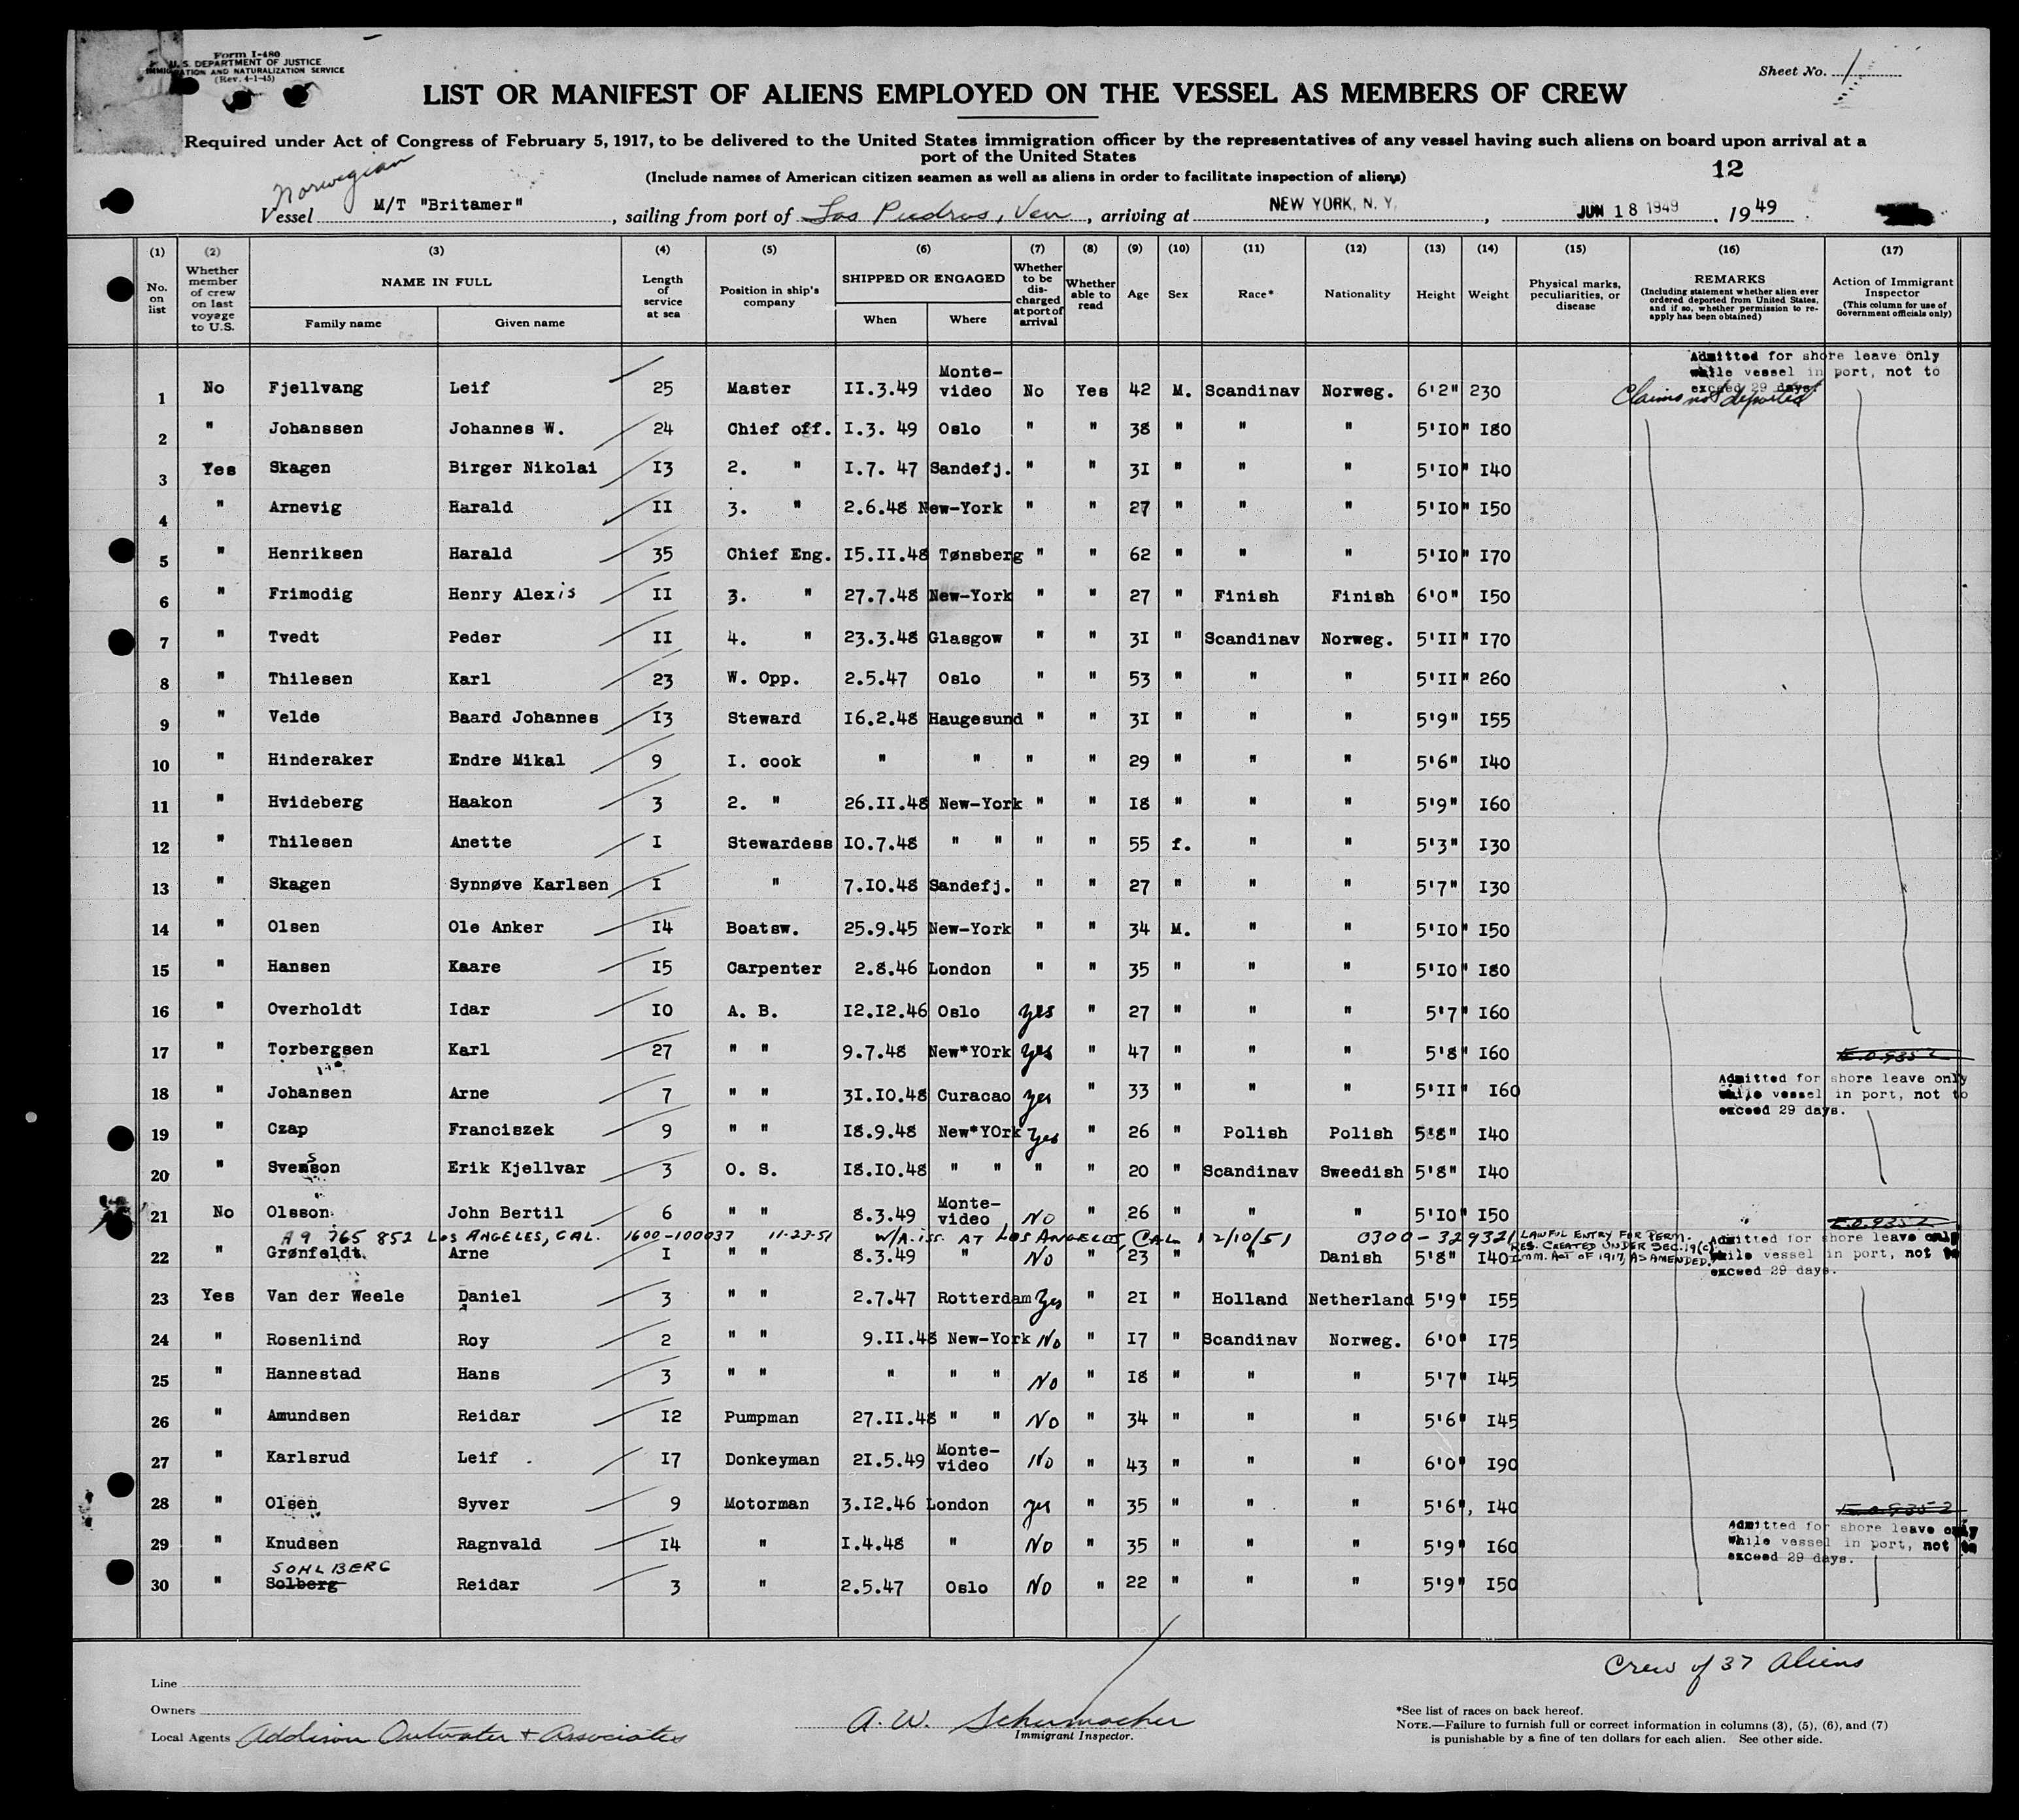 Form I-480
U. S. DEPARTMENT OF JUSTICE
IMMIGRATION AND NATURALIZATION SERVICE
(Rev. 4-1-45)
Sheet No. 1
LIST OR MANIFEST OF ALIENS EMPLOYED ON THE VESSEL AS MEMBERS OF CREW
Required under Act of Congress of February 5, 1917, to be delivered to the United States immigration officer by the representatives of any vessel having such aliens on board upon arrival at a
port of the United States
12
(Include names of American citizen seamen as well as aliens in order to facilitate inspection of aliens)
Norwegian
Vessel M/T "Britamer", sailing from port of Las Piedras, Ven, arriving at NEW YORK, N. Y., JUN 18 1949, 1949
(1) (2) (3) (4) (5) (6) (7) (8) (9) (10) (11) (12) (13) (14) (15) (16) (17)
No. on list Whether member of crew on last voyage to U.S. NAME IN FULL Family name Given name Length of service at sea Position in ship's company SHIPPED OR ENGAGED When Where Whether to be discharged at port of arrival Whether able to read Age Sex Race* Nationality Height Weight Physical marks, peculiarities, or disease REMARKS (Including statement whether alien ever ordered deported from United States, and if so, whether permission to re-apply has been obtained) Action of Immigrant Inspector (This column for use of Government officials only)
Admitted for shore leave only
while vessel in port, not to
exceed 29 days.
Claims not deported
1 No Fjellvang Leif 25 Master II.3.49 Monte-video No Yes 42 M. Scandinav Norweg. 6'2" 230
2 " Johanssen Johannes W. 24 Chief off. I.3. 49 Oslo " " 38 " " " 5'IO" I80
3 Yes Skagen Birger Nikolai I3 2. " I.7. 47 Sandefj. " " 3I " " " 5'IO" I40
4 " Arnevig Harald II 3. " 2.6.48 New-York " " 27 " " " 5'IO" I50
5 " Henriksen Harald 35 Chief Eng. I5.II.48 Tønsberg " " 62 " " " 5'IO" I70
6 " Frimodig Henry Alexis II 3. " 27.7.48 New-York " " 27 " Finish Finish 6'0" I50
7 " Tvedt Peder II 4. " 23.3.48 Glasgow " " 3I " Scandinav Norweg. 5'II" I70
8 " Thilesen Karl 23 W. Opp. 2.5.47 Oslo " " 53 " " " 5'II" 260
9 " Velde Baard Johannes I3 Steward I6.2.48 Haugesund " " 3I " " " 5'9" I55
10 " Hinderaker Endre Mikal 9 I. cook " " " " 29 " " " 5'6" I40
11 " Hvideberg Haakon 3 2. " 26.II.48 New-York " " I8 " " " 5'9" I60
12 " Thilesen Anette I Stewardess IO.7.48 " " " " 55 f. " " 5'3" I30
13 " Skagen Synnøve Karlsen I " 7.IO.48 Sandefj. " " 27 " " " 5'7" I30
14 " Olsen Ole Anker I4 Boatsw. 25.9.45 New-York " " 34 M. " " 5'IO" I50
15 " Hansen Kaare I5 Carpenter 2.8.46 London " " 35 " " " 5'IO" I80
16 " Overholdt Idar IO A. B. I2.I2.46 Oslo yes " 27 " " " 5'7" I60
17 " Torbergsen Karl 27 " " 9.7.48 New*YOrk yes " 47 " " " 5'8" I60 E.O.9352
Admitted for shore leave only
while vessel in port, not to
exceed 29 days.
18 " Johansen Arne 7 " " 3I.IO.48 Curacao yes " 33 " " " 5'II" I60
19 " Czap Franciszek 9 " " I8.9.48 New*YOrk yes " 26 " Polish Polish 5'8" I40
20 " Svensson Erik Kjellvar 3 O. S. I8.IO.48 " " " " 20 " Scandinav Sweedish 5'8" I40
21 No Olsson John Bertil 6 " " 8.3.49 Monte-video No " 26 " " " 5'IO" I50 E.O.9352
A9 765 852 Los ANGELES, CAL. 1600-100037 11-23-51 W/A iss. AT LOS ANGELES, CAL 12/10/51 0300-329321 LAWFUL ENTRY FOR PERM. RES. CREATED UNDER SEC. 19(c) IMM. ACT OF 1917, AS AMENDED.
Admitted for shore leave only
while vessel in port, not to
exceed 29 days.
22 " Grønfeldt Arne I " " 8.3.49 " No " 23 " " Danish 5'8" I40
23 Yes Van der Weele Daniel 3 " " 2.7.47 Rotterdam Yes " 2I " Holland Netherland 5'9" I55
24 " Rosenlind Roy 2 " " 9.II.48 New-York No " I7 " Scandinav Norweg. 6'0" I75
25 " Hannestad Hans 3 " " " " " No " I8 " " " 5'7" I45
26 " Amundsen Reidar I2 Pumpman 27.II.48 " " No " 34 " " " 5'6" I45
27 " Karlsrud Leif I7 Donkeyman 2I.5.49 Monte-video No " 43 " " " 6'0" I90
28 " Olsen Syver 9 Motorman 3.I2.46 London yes " 35 " " " 5'6", I40 E.O.9352
Admitted for shore leave only
while vessel in port, not to
exceed 29 days.
29 " Knudsen Ragnvald I4 " I.4.48 " No " 35 " " " 5'9" I60
SOHLBERG
30 " Solberg Reidar 3 " 2.5.47 Oslo No " 22 " " " 5'9" I50
Crew of 37 Aliens
Line
Owners
Local Agents Addison Outwater + Associates
A. W. Schumacher
Immigrant Inspector.
*See list of races on back hereof.
NOTE.—Failure to furnish full or correct information in columns (3), (5), (6), and (7)
is punishable by a fine of ten dollars for each alien. See other side.